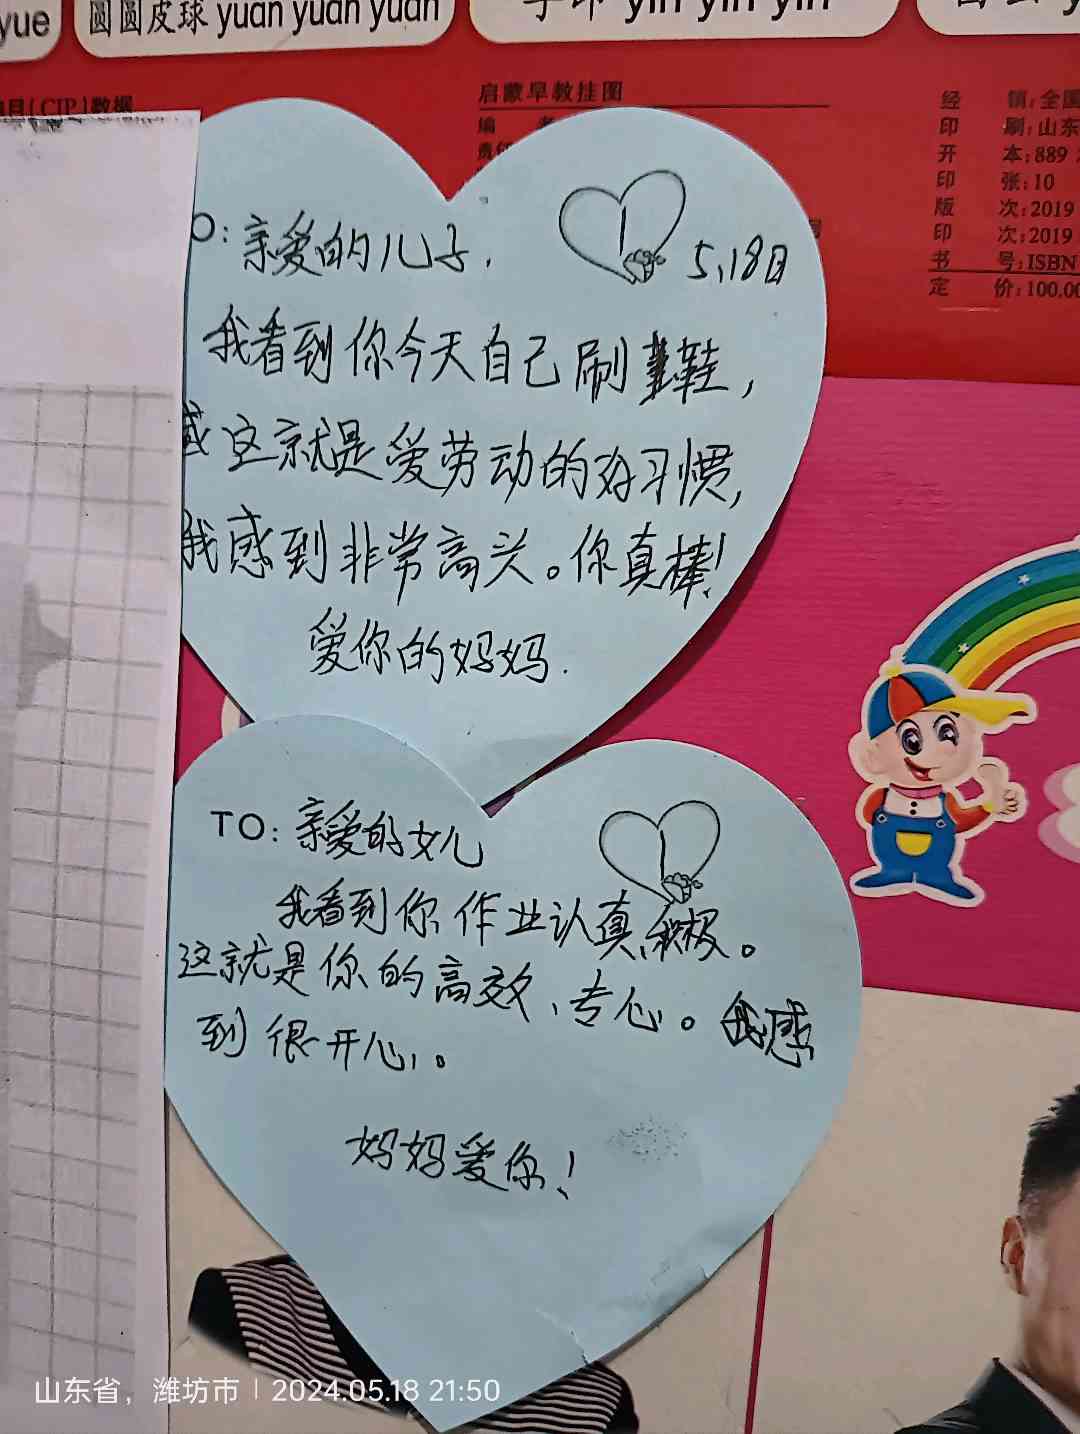 yue
圆圆皮球 yuan yuan yuan
yin yin yin
启蒙早教挂图
经 销:全国
编
印 刷:山东
开 本:889
印 张:10
版 次:2019
印 次:2019
书 号:ISBN
定 价:100.00
O: 亲爱的儿子,
5,18日
我看到你今天自己刷鞋,
这就是爱劳动的好习惯,
我感到非常高兴。你真棒!
爱你的妈妈.
TO: 亲爱的女儿
我看到你作业认真积极。
这就是你的高效、专心。我感
到很开心。
妈妈爱你!
山东省，潍坊市 | 2024.05.18 21:50